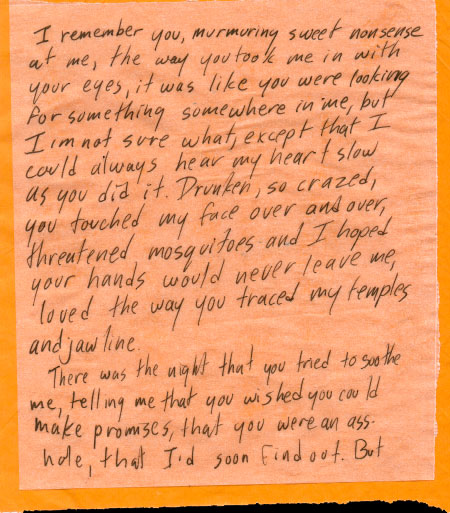 I remember you, murmuring sweet nonsense
at me, the way you took me in with
your eyes, it was like you were looking
for something somewhere in me, but
I'm not sure what, except that I
could always hear my heart slow
as you did it. Drunken, so crazed,
you touched my face over and over,
threatened mosquitoes and I hoped
your hands would never leave me,
loved the way you traced my temples
and jawline.
There was the night that you tried to soothe
me, telling me that you wished you could
make promises, that you were an ass-
hole, that I'd soon find out. But